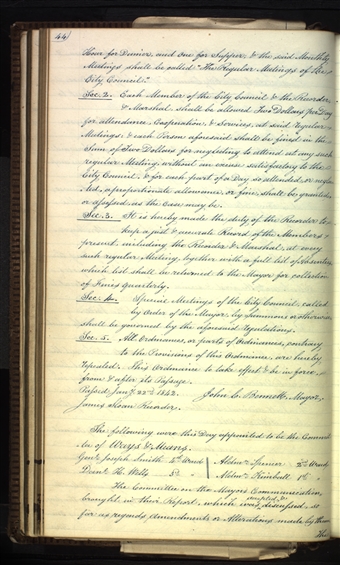 44
Hour for Dinner, and one for Supper, & the said Monthly
Meetings shall be called "The Regular Meetings of the
City Council."
Sec. 2. Each Member of the City Council & the Recorder
& Marshal, shall be allowed Two Dollars per Day
for attendance, Expiration, & Services, at said Regular
Meetings; & each Person aforesaid shall be fined in the
Sum of Two Dollars for neglecting to attend at any such
regular Meeting without an excuse satisfactory to the
City Council, & for each part of a Day so attended, or neglec-
ted, a proportionate allowance, or fine, shall be granted
or assessed as the case may be.
Sec. 3. It is hereby made the duty of the Recorder to
keep a just & accurate Record of the Members
present, including the Recorder & Marshal, at every
such regular Meeting, together with a full list of Absentees
which list shall be returned to the Mayor for collection
of Fines quarterly.
Sec. 4. Special Meetings of the City Council, called
by Order of the Mayor, by Summons or otherwise
shall be governed by the aforesaid Regulations.
Sec. 5. All Ordinances, or parts of Ordinances, contrary
to the Provisions of this Ordinance, are hereby
repealed. This Ordinance to take effect & be in force,
from & after its Passage.
Passed Jany. 22nd 1842. John C. Bennett, Mayor,
James Sloan Recorder.
The following were this Day appointed to be the Commit-
tee of Ways & Means.
Genl. Joseph Smith 4th Ward Aldn. Spencer 2nd Ward
Danl. H. Wells Aldn. Kimball 1st "
The Committee on the Mayor's Communication,
brought in their Report, which was accepted, & discussed, so
far as regards Amendments or Alterations made by them
The